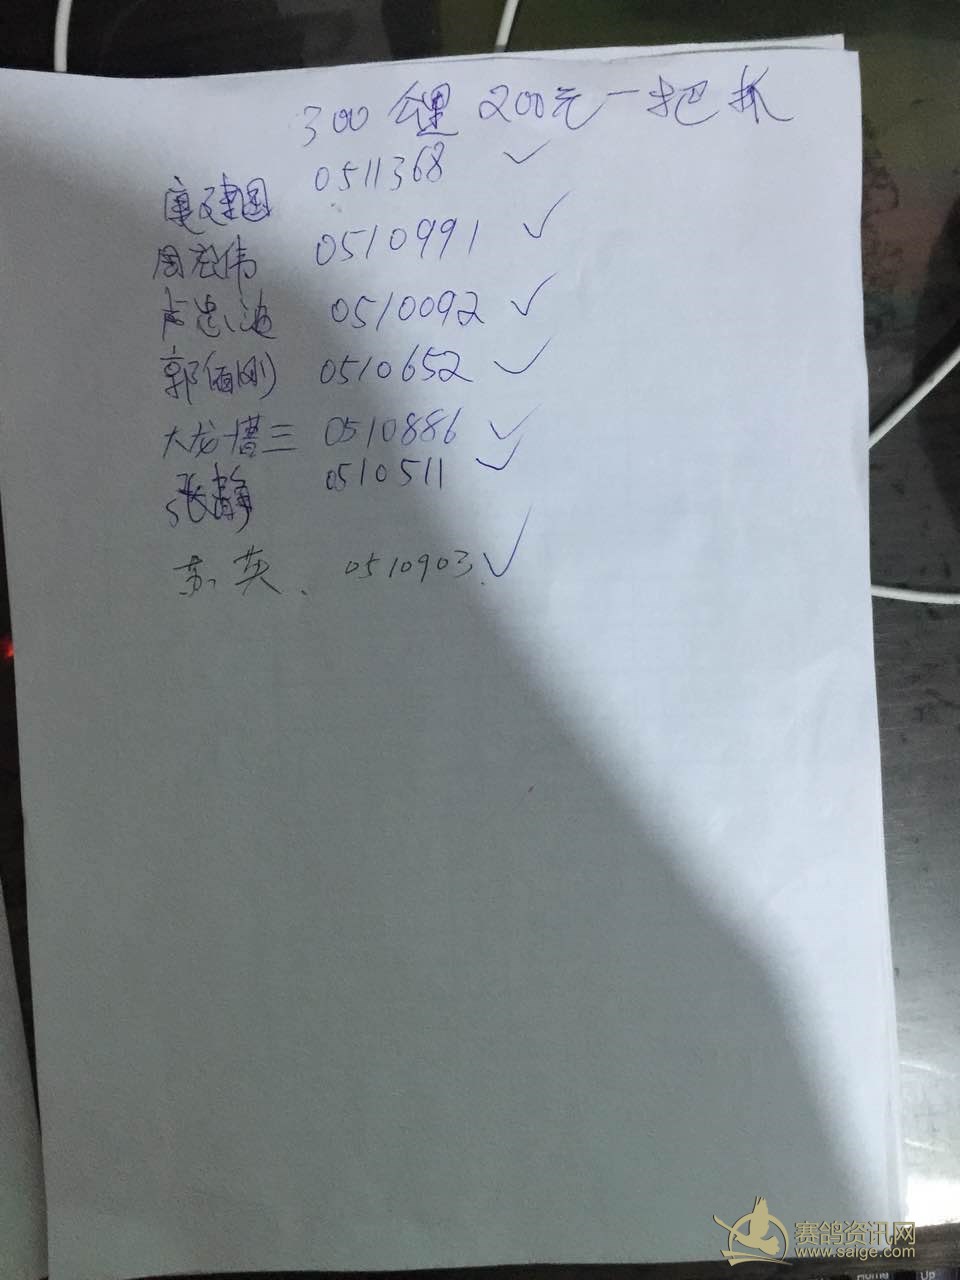 300公里 200元一把抓
康建国 0511368 ✓
周宏伟 0510991 ✓
卢忠池 0510092 ✓
郭佰刚 0510652 ✓
大龙 三 0510886 ✓
张静 0510511 ✓
苏英、 0510903. ✓
赛鸽资讯网
www.saige.com
Home Up